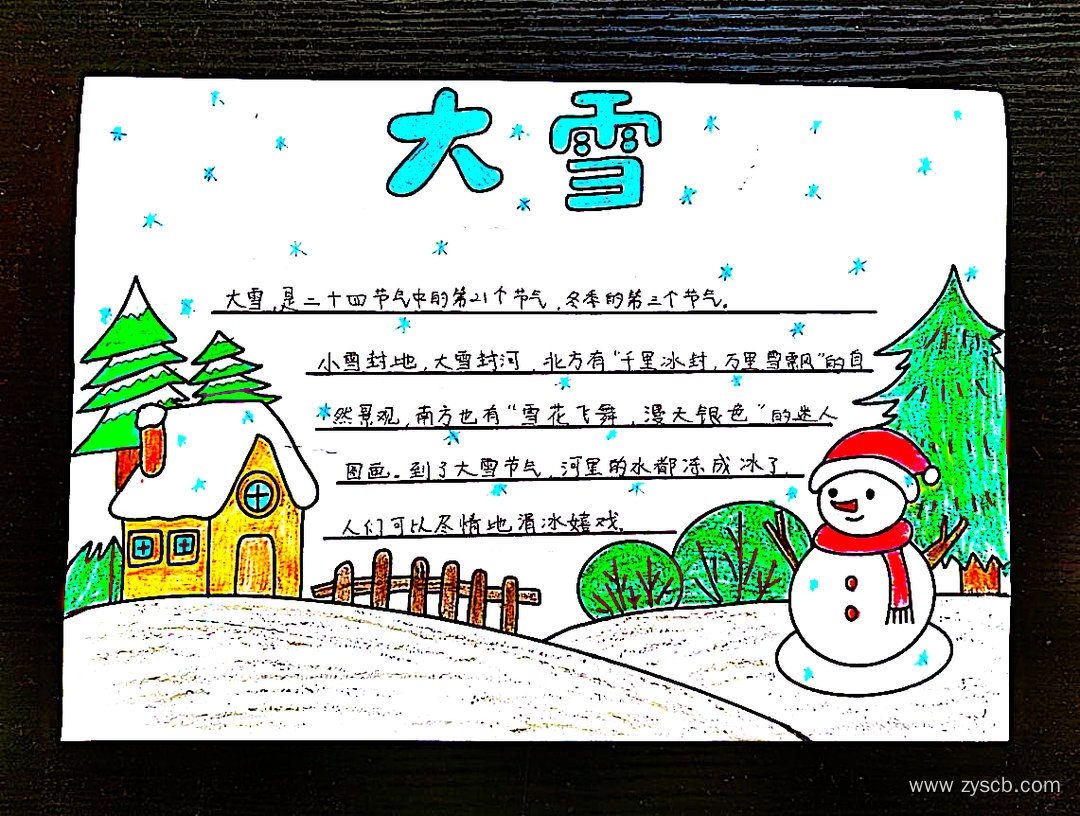 大雪
大雪,是二十四节气中的第21个节气,冬季的第三个节气。
小雪封地,大雪封河 北方有“千里冰封,万里雪飘”的自
然景观,南方也有“雪花飞舞,漫天银色”的迷人
图画。到了大雪节气,河里的水都冻成冰了,
人们可以尽情地滑冰嬉戏。
www.zyscb.com